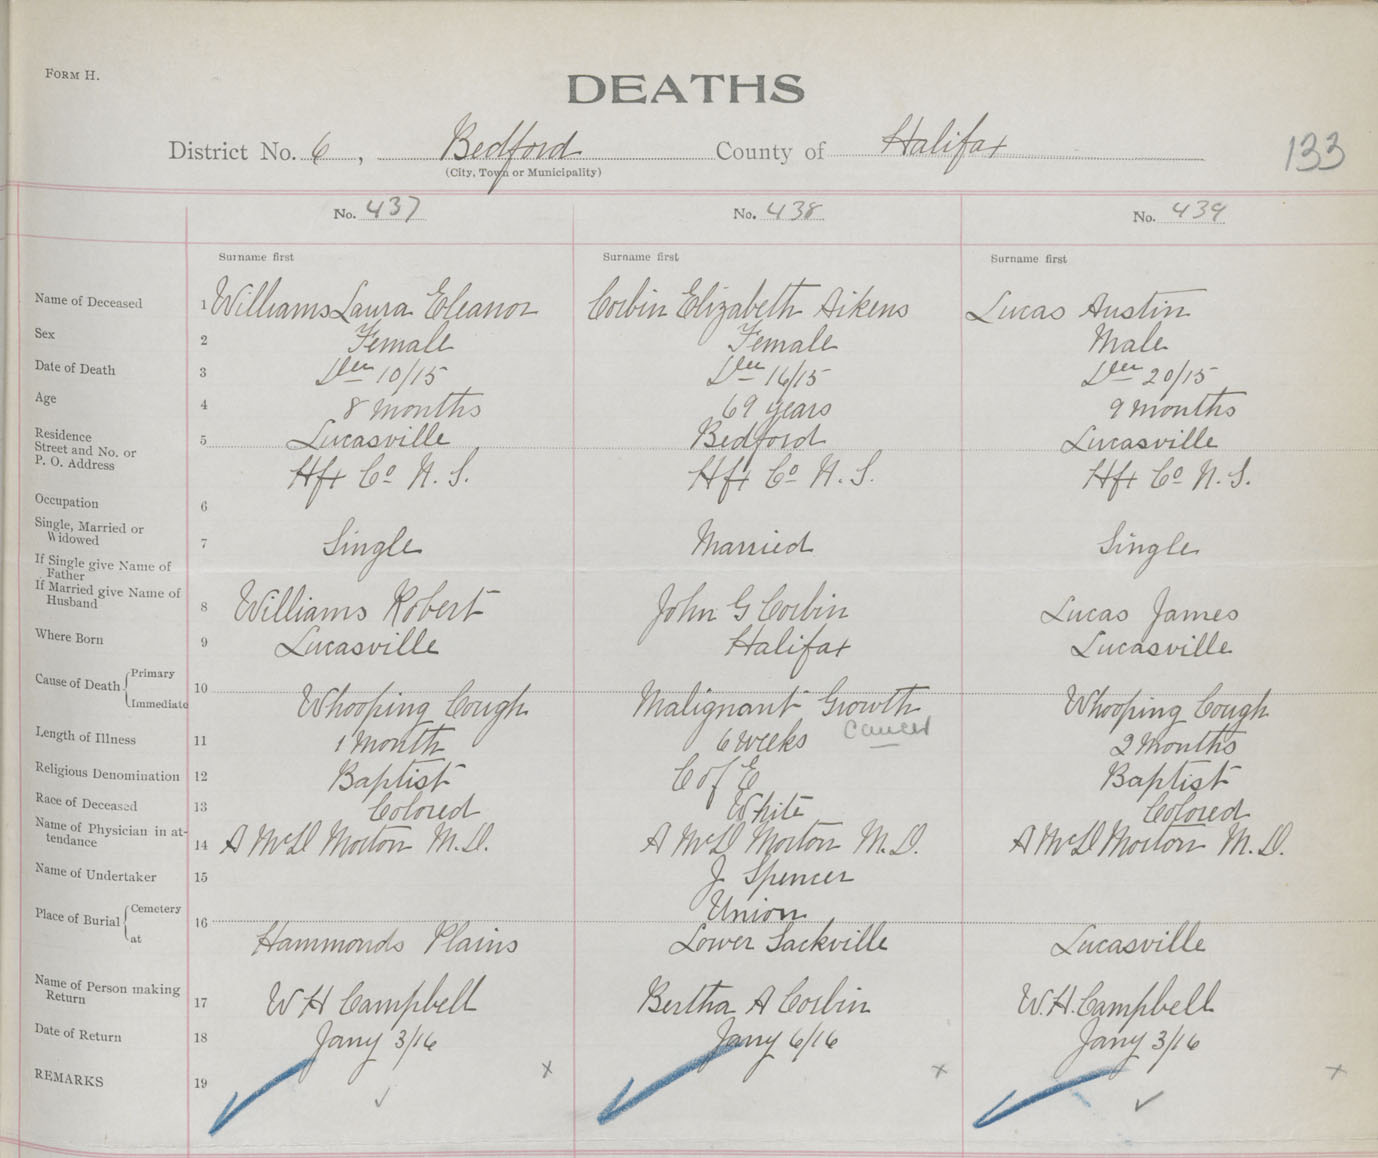 FORM H.
DEATHS
District No. 6, Bedford County of Halifax
(City, Town or Municipality)
133
No. 437 No. 438 No. 439
Surname first Surname first Surname first
Name of Deceased 1 Williams Laura Eleanor Corbin Elizabeth Aikens Lucas Austin
Sex 2 Female Female Male
Date of Death 3 Decr 10/15 Decr 16/15 Decr 20/15
Age 4 8 months 69 years 9 months
Residence
Street and No. or
P. O. Address
5 Lucasville Bedford Lucasville
Hfx Co N. S. Hfx Co N. S. Hfx Co N. S.
Occupation 6
Single, Married or
Widowed
7 Single Married Single
If Single give Name of
Father
If Married give Name of
Husband
8 Williams Robert John G Corbin Lucas James
Where Born 9 Lucasville Halifax Lucasville
Cause of Death { Primary
Immediate
10 Whooping Cough Malignant Growth Whooping Cough
cancer
Length of Illness 11 1 month 6 weeks 2 months
Religious Denomination 12 Baptist C of E Baptist
Race of Deceased 13 Colored White Colored
Name of Physician in at-
tendance
14 A McD Morton M. D. A McD Morton M. D. A McD Morton M. D.
Name of Undertaker 15 J Spencer
Place of Burial { Cemetery
at
16 Union
Hammonds Plains Lower Sackville Lucasville
Name of Person making
Return
17 W H Campbell Bertha A Corbin W. H. Campbell
Date of Return 18 Jany 3/16 Jany 6/16 Jany 3/16
REMARKS 19 x x x